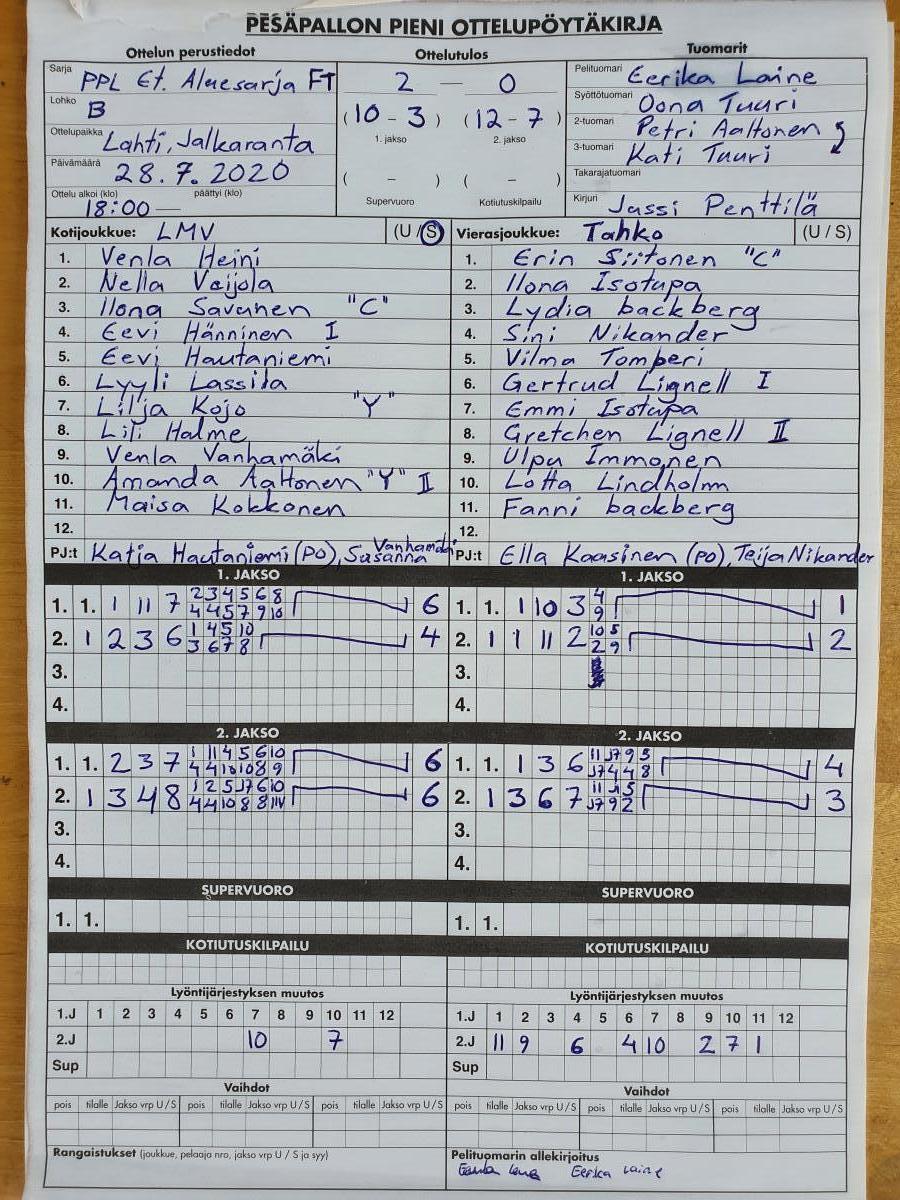 PESÄPALLON PIENI OTTELUPÖYTÄKIRJA
Ottelun perustiedot
Sarja PPL Et. Aluesarja FT
Lohko B
Ottelupaikka Lahti, Jalkaranta
Päivämäärä 28.7.2020
Ottelu alkoi (klo) päättyi (klo)
18:00 —
Ottelutulos
2 — 0
(10 - 3) (12 - 7)
1. jakso 2. jakso
( - ) ( - )
Supervuoro Kotiutuskilpailu
Tuomarit
Pelituomari Eerika Laine
Syöttötuomari Oona Tuuri
2-tuomari Petri Aaltonen
3-tuomari Kati Tuuri
Takarajatuomari
Kirjuri Jussi Penttilä
Kotijoukkue: LMV (U/S)
1. Venla Heini
2. Nella Veijola
3. Ilona Savunen "C"
4. Eevi Hänninen I
5. Eevi Hautaniemi
6. Lyyli Lassila
7. Lilja Kojo "Y"
8. Lili Halme
9. Venla Vanhamäki
10. Amanda Aaltonen "Y" II
11. Maisa Kokkonen
12.
PJ:t Katja Hautaniemi (PO), Susanna Vanhamäki
Vierasjoukkue: Tahko (U/S)
1. Erin Siitonen "C"
2. Ilona Isotupa
3. Lydia backberg
4. Sini Nikander
5. Vilma Tomperi
6. Gertrud Lignell I
7. Emmi Isotupa
8. Gretchen Lignell II
9. Ulpu Immonen
10. Lotta Lindholm
11. Fanni backberg
12.
PJ:t Ella Kaasinen (PO), Teija Nikander
1. JAKSO
1. 1. 1 11 7 2 3 4 5 6 8 6
4 4 5 7 9 10
2. 1 2 3 6 1 4 5 10 4
3 6 7 8
3.
4.
1. JAKSO
1. 1. 1 10 3 4 1
9
2. 1 1 11 2 10 5 2
2 9
3.
4.
2. JAKSO
1. 1. 2 3 7 1 11 4 5 6 10 6
4 4 10 10 8 9
2. 1 3 4 8 1 2 5 6 10 6
4 4 10 8 8
3.
4.
2. JAKSO
1. 1. 1 3 6 11 9 5 4
4 4 8
2. 1 3 6 7 11 5 3
9 2
3.
4.
SUPERVUORO
1. 1.
SUPERVUORO
1. 1.
KOTIUTUSKILPAILU
KOTIUTUSKILPAILU
Lyöntijärjestyksen muutos
1.J 1 2 3 4 5 6 7 8 9 10 11 12
2.J 10 7
Sup
Lyöntijärjestyksen muutos
1.J 1 2 3 4 5 6 7 8 9 10 11 12
2.J 11 9 6 4 10 2 7 1
Sup
Vaihdot
pois tilalle Jakso vrp U/S pois tilalle Jakso vrp U/S pois tilalle Jakso vrp U/S
Vaihdot
pois tilalle Jakso vrp U/S pois tilalle Jakso vrp U/S pois tilalle Jakso vrp U/S
Rangaistukset (joukkue, pelaaja nro, jakso vrp U / S ja syy)
Pelituomarin allekirjoitus
Eerika Laine